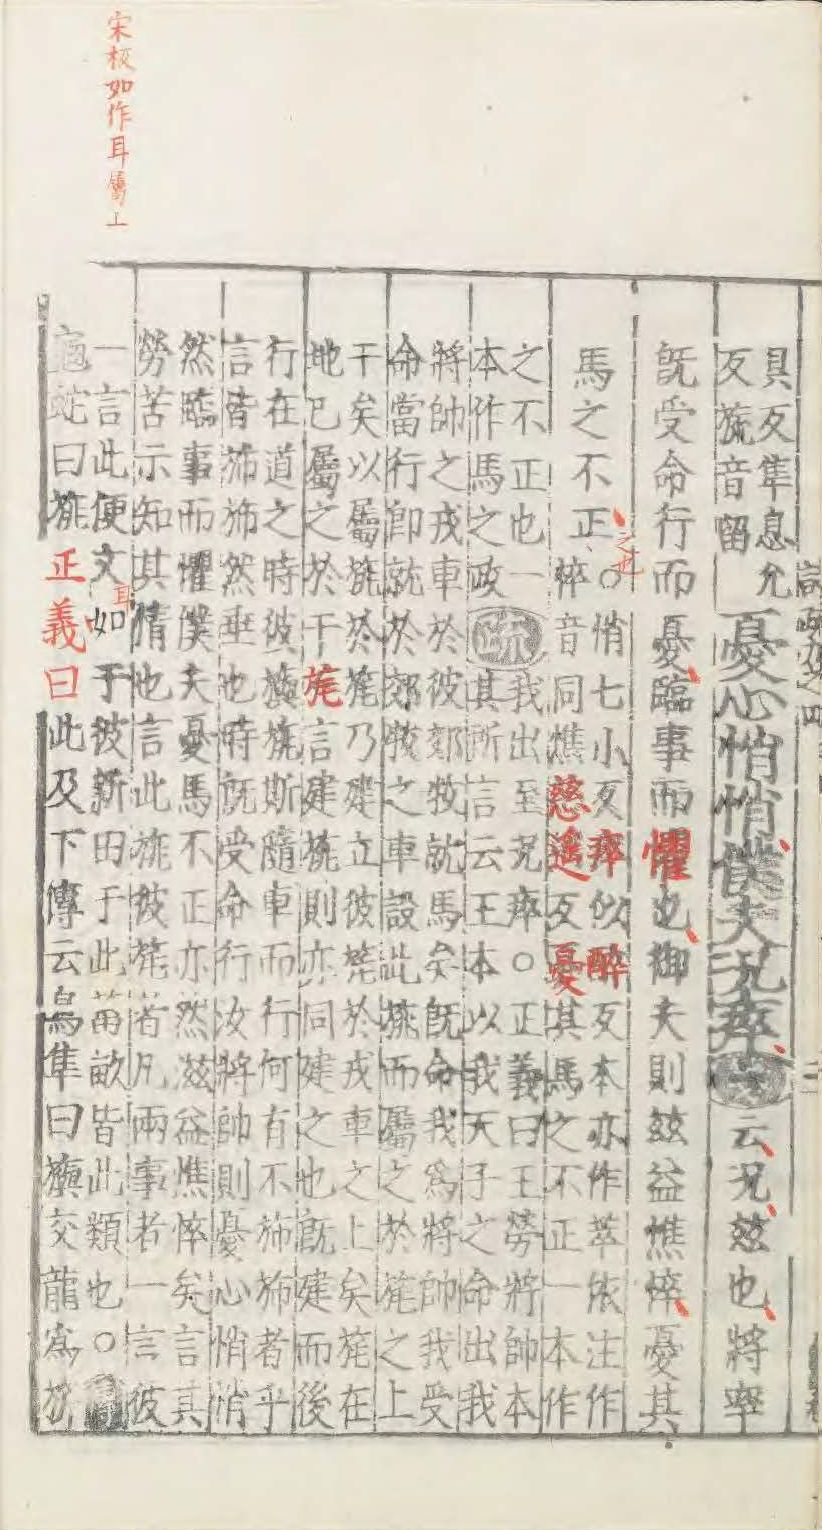 宋板如作耳屬上
貝反隼息允
反旒音留
憂心悄悄僕夫況瘁箋云況茲也將率
既受命行而憂臨事而懼也御夫則茲益憔悴憂其
馬之不正
○悄七小反瘁似醉反本亦作萃依注作
悴音同憔慈遥反憂其馬之不正一本作
之不正也一
本作馬之政
疏
我出至況瘁○正義曰王勞將帥本
其所言云王本以我天子之命出我
將帥之戎車於彼郊牧就馬矣既命我為將帥我受
命當行即就於郊牧之車設此旐而屬之於旄之上
干矣以屬旐於旄乃建立彼旄於戎車之上矣旄在
地已屬之於干旄言建旐則亦同建之也既建而後
行在道之時彼旟旐斯隨車而行何有不斾斾者乎
言皆斾斾然垂也時既受命行汝將帥則憂心悄悄
然臨事而懼僕夫憂馬不正亦然滋益憔悴矣言其
勞苦示知其情也言此旐彼旄者凡兩事者一言彼
一言此便文如于彼新田于此菑畝皆此類也○傳
耳
龜蛇曰旐正義曰此及下傳云鳥隼曰旟交龍為旂